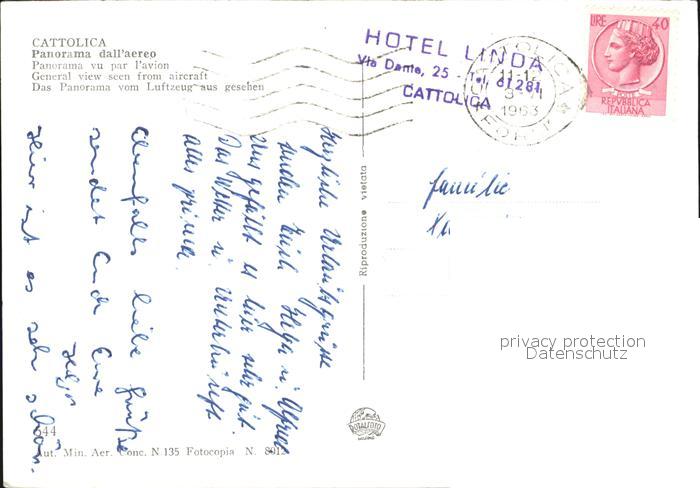 CATTOLICA
Panorama dall'aereo
Panorama vu par l'avion
General view seen from aircraft
Das Panorama vom Luftzeug aus gesehen
HOTEL LINDA
Via Dante, 25 - Tel. 61281
CATTOLICA
CATTOLICA
11-12
1963
LIRE 40
POSTE
REPVBBLICA
ITALIANA
Herzliche Urlaubsgrüsse
senden Euch Helga u. Alfred
uns gefällt es hier sehr gut.
Das Wetter u. Unterkunft
alles prima.
Ebenfalls liebe Grüße
sendet Euch Eure
Helga
Hier ist es sehr schön.
Riproduzione vietata
Familie
privacy protection
Datenschutz
ROTALFOTO
MILANO
544
Aut. Min. Aer. Conc. N 135 Fotocopia N.